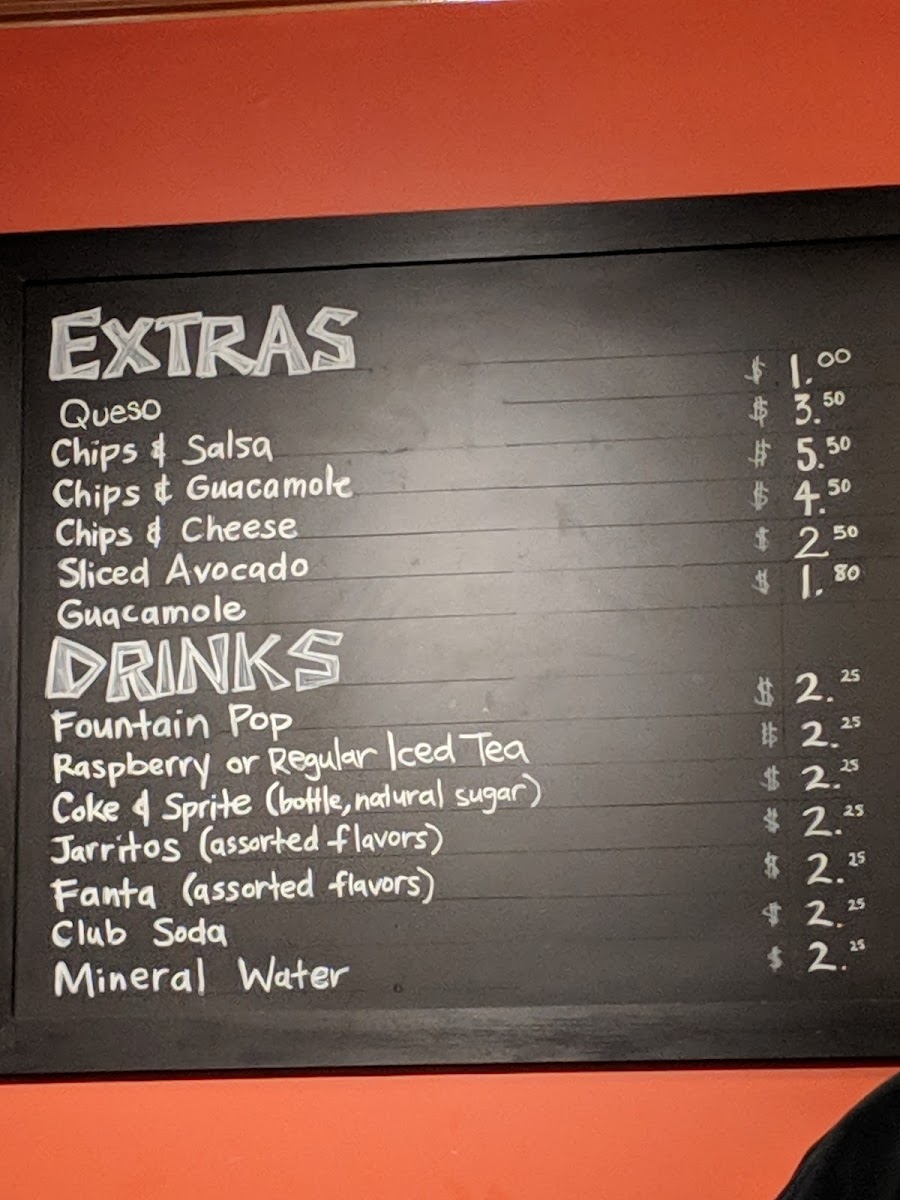 EXTRAS
Queso $ 1.00
Chips & Salsa $ 3.50
Chips & Guacamole $ 5.50
Chips & Cheese $ 4.50
Sliced Avocado $ 2.50
Guacamole $ 1.80
DRINKS
Fountain Pop $ 2.25
Raspberry or Regular Iced Tea $ 2.25
Coke & Sprite (bottle, natural sugar) $ 2.25
Jarritos (assorted flavors) $ 2.25
Fanta (assorted flavors) $ 2.25
Club Soda $ 2.25
Mineral Water $ 2.25